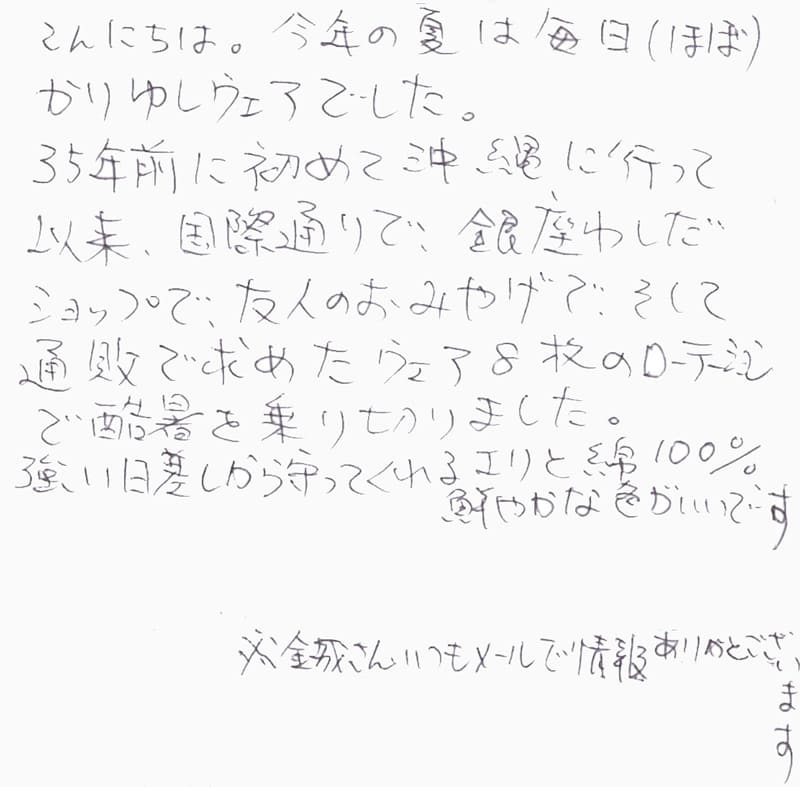 こんにちは。今年の夏は毎日(ほぼ)
かりゆしウェアでした。
35年前に初めて沖縄に行って
以来、国際通りで、銀座わしだ
ショップで、友人のおみやげで、そして
通販で求めたウェア8枚のローテーション
で酷暑を乗り切りました。
強い日差しから守ってくれるエリと綿100%
鮮やかな色がいいです
※金城さんいつもメールで情報ありがとうござい
ます